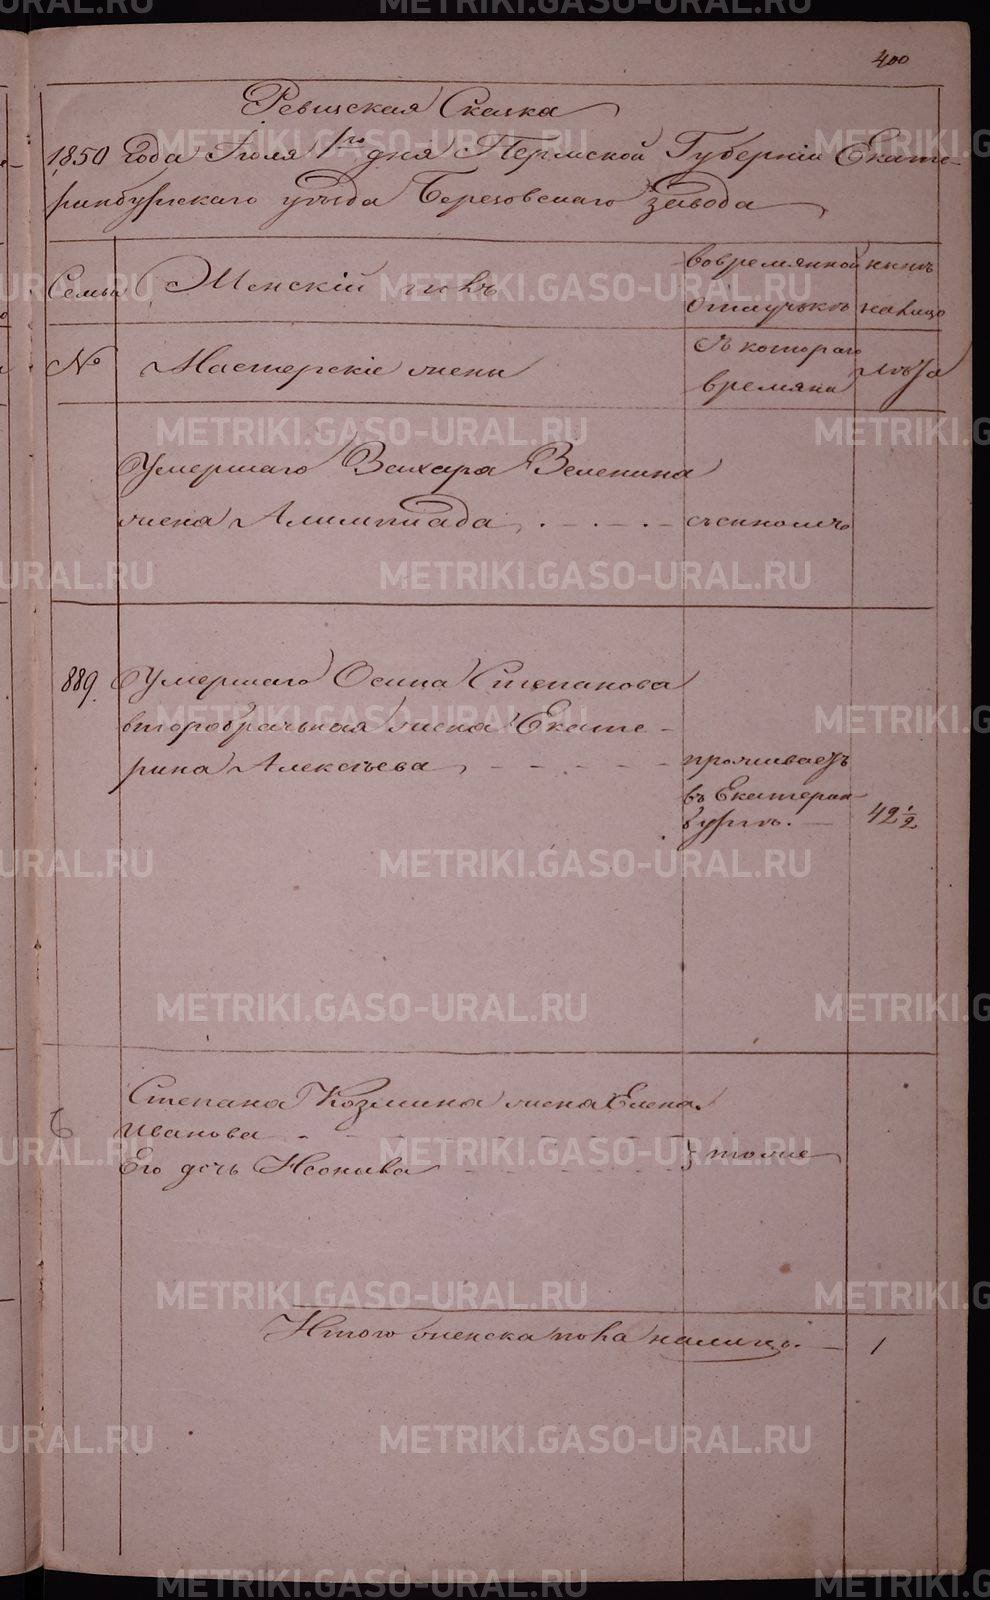 400
Ревизская Сказка
1850 года Июля 1го дня Пермской Губернии Екате-
ринбургского уезда Березовскаго завода
Семьи
Женскій полъ
вовременной
отлучкѣ
нынѣ
налицо
№
Мастерскіе жены
съ котораго
времяни
лѣта
Умершаго Захара Зеленина
жена Алимпиада . - . - . -
889.
Умершаго Осипа Степанова
второбрачьная жена Екате-
рина Алексѣева - - - - -
проживаетъ
въ Екатерин
бургѣ. -
42 1/2
Степана Козмина жена Елена
Иванова - - - - - - - - -
Его дочь - - - - - -
тоже
Итого женска пола налицъ. -
1
METRIKI.GASO-URAL.RU